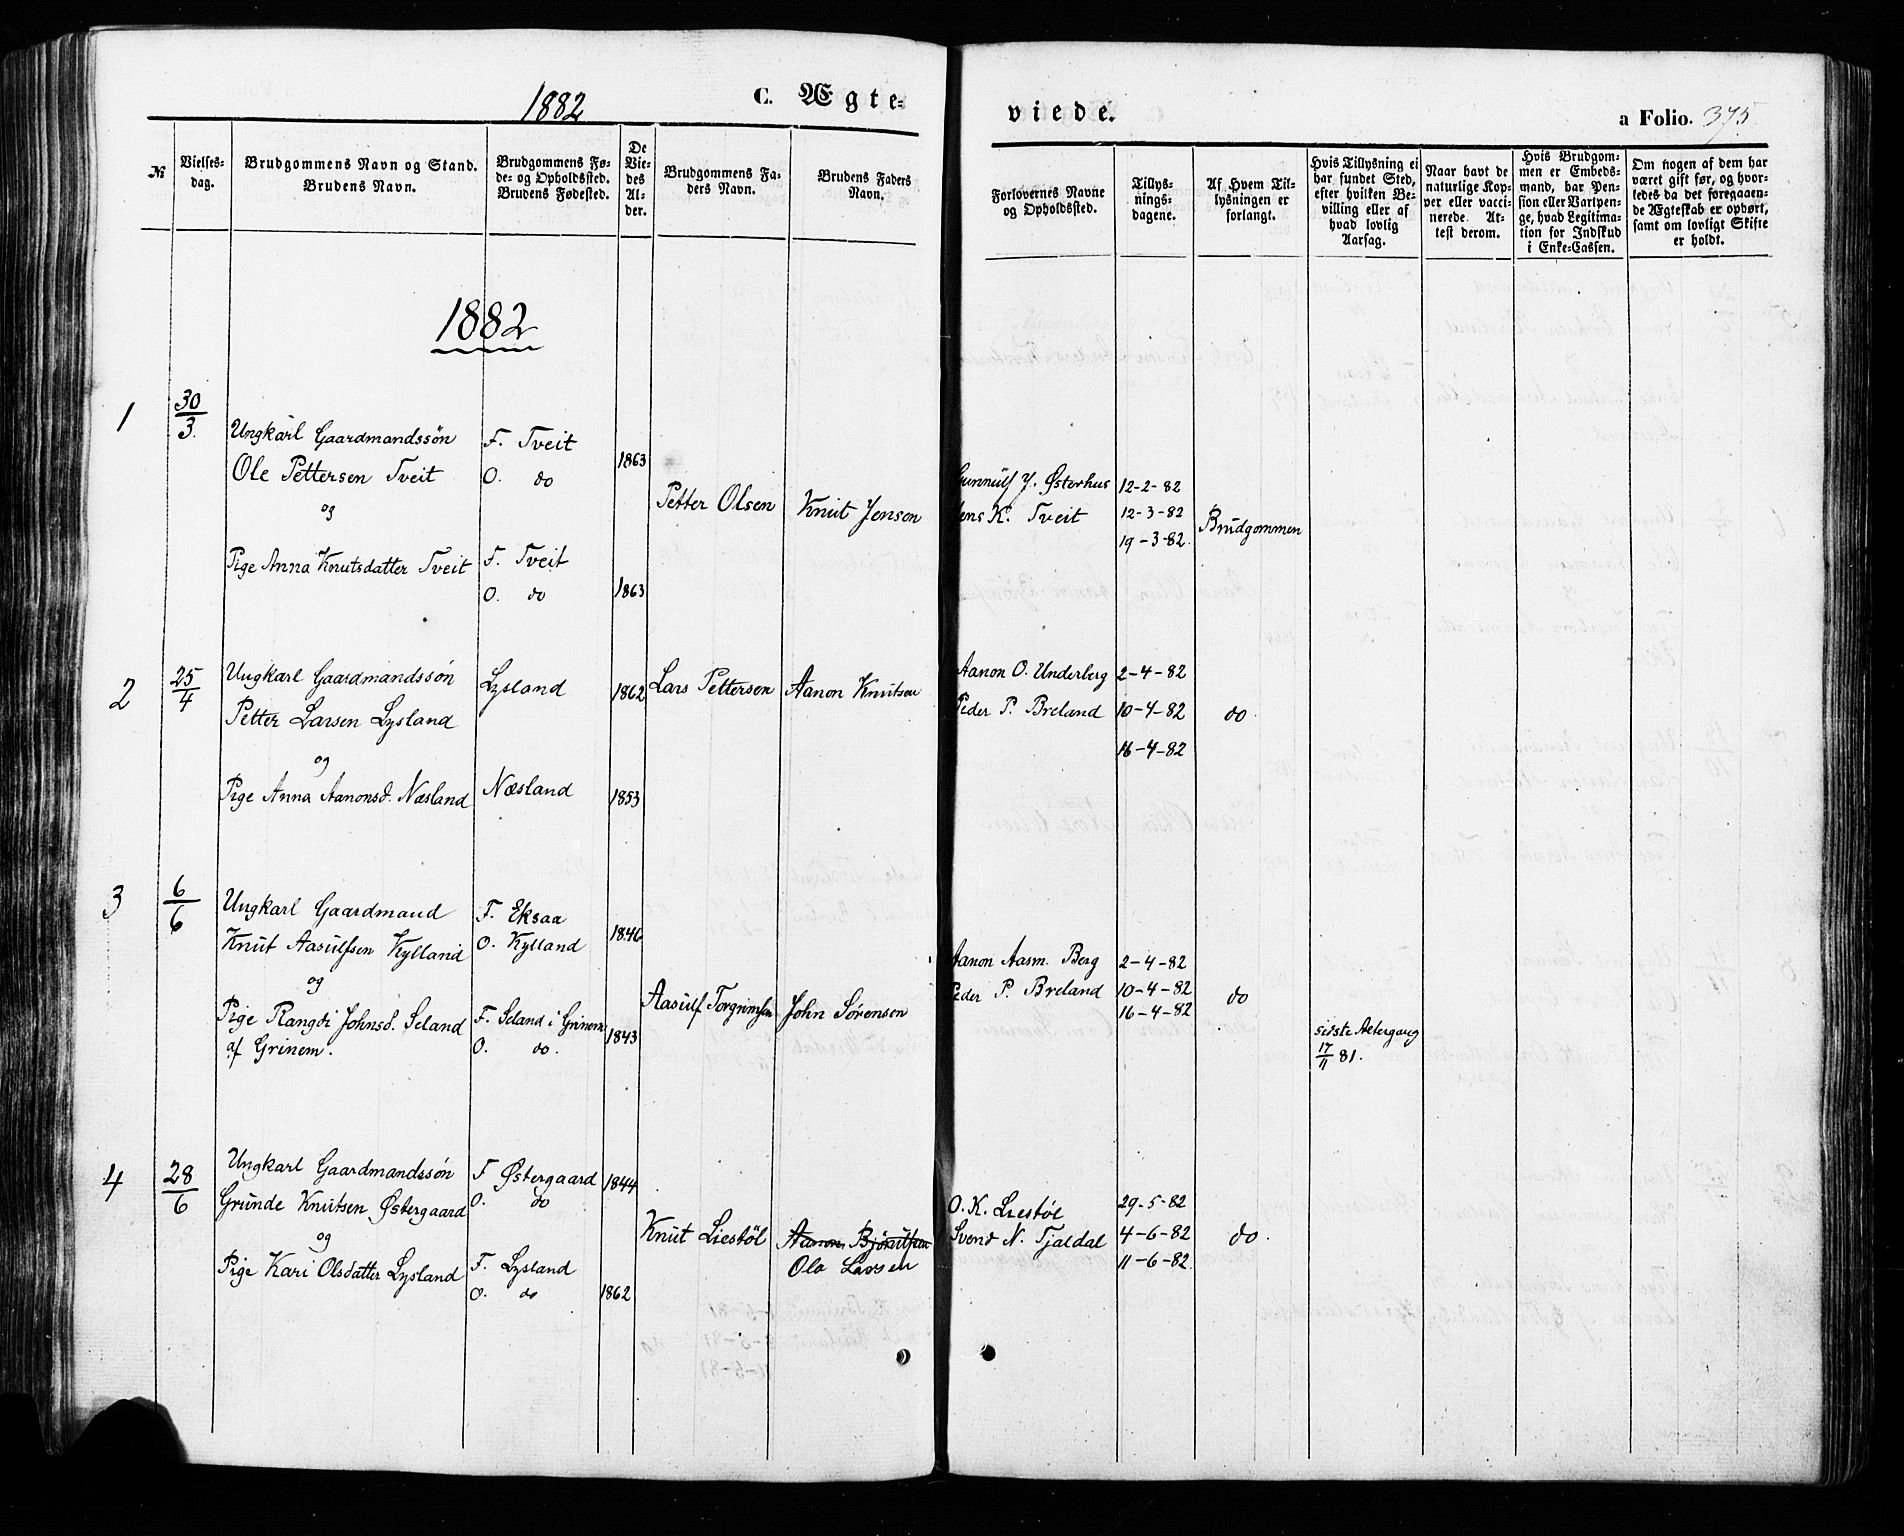 1882
C. Ægte-
viede.
a Folio. 375
№
Vielses-
dag.
Brudgommens Navn og Stand.
Brudens Navn.
Brudgommens Fø-
de- og Opholdssted.
Brudens Fødested.
De
Vie-
des
Al-
der.
Brudgommens Fa-
ders Navn.
Brudens Faders
Navn.
Forlovernes Navne
og Opholdssted.
Tillys-
nings-
dagene.
Af Hvem Til-
lysningen er
forlangt.
Hvis Tillysning ei
har fundet Sted,
efter hvilken Be-
villing eller af
hvad lovlig
Aarsag.
Naar havt de
naturlige Kop-
per eller vacci-
nerede. At-
test derom.
Hvis Brudgom-
men er Embeds-
mand, har Pen-
sion eller Vartpen-
ge, hvad Legitima-
tion for Indskud
i Enke-Cassen.
Om nogen af dem har
været gift før, og hvor-
ledes da det foregaaen-
de Ægteskab er ophørt,
samt om lovligt Skifte
er holdt.
1882
1
30/3.
Ungkarl Gaardmandssøn
Ole Pettersen Tveit
og
Pige Anna Knutsdatter Tveit
F. Tveit
O. do
F. Tveit
O. do
1863
1863
Petter Olsen
Knut Jensen
Gunnulf J. Østerhus
Jens K. Tveit
12-2-82
12-3-82
19-3-82.
Brudgommen
2
25/4
Ungkarl Gaardmandssøn
Petter Larsen Lysland
og
Pige Anna Aanonsd. Næsland
Lysland
Næsland
1862
1853
Lars Pettersen
Aanon Knutsen
Aanon O. Underberg
Peder P. Breland
2-4-82
10-4-82
16-4-82
do
3
6/6
Ungkarl Gaardmand
Knut Aasulfsen Kylland
og
Pige Rangdi Johnsd. Seland
af Grinem.
F. Eksaa
O. Kylland
F. Seland i Grinem
O. do.
1846
1843
Aasulf Torgrimsen
John Sørensen
Aanon Aasm. Berg
Peder P. Breland
2-4-82
10-4-82
16-4-82
do
sidste Altergang
17/11 81.
4
28/6
Ungkarl Gaardmandssøn
Grunde Knutsen Østergaard
og
Pige Kari Olsdatter Lysland
F Østergaard
O. do
F. Lysland
O. do
1844
1862
Knut Liestöl
Aanon Bjønulfsen
Ola Larsen
O. K. Liestøl
Svend N. Tjaldal
29-5-82
4-6-82
11-6-82.
do.